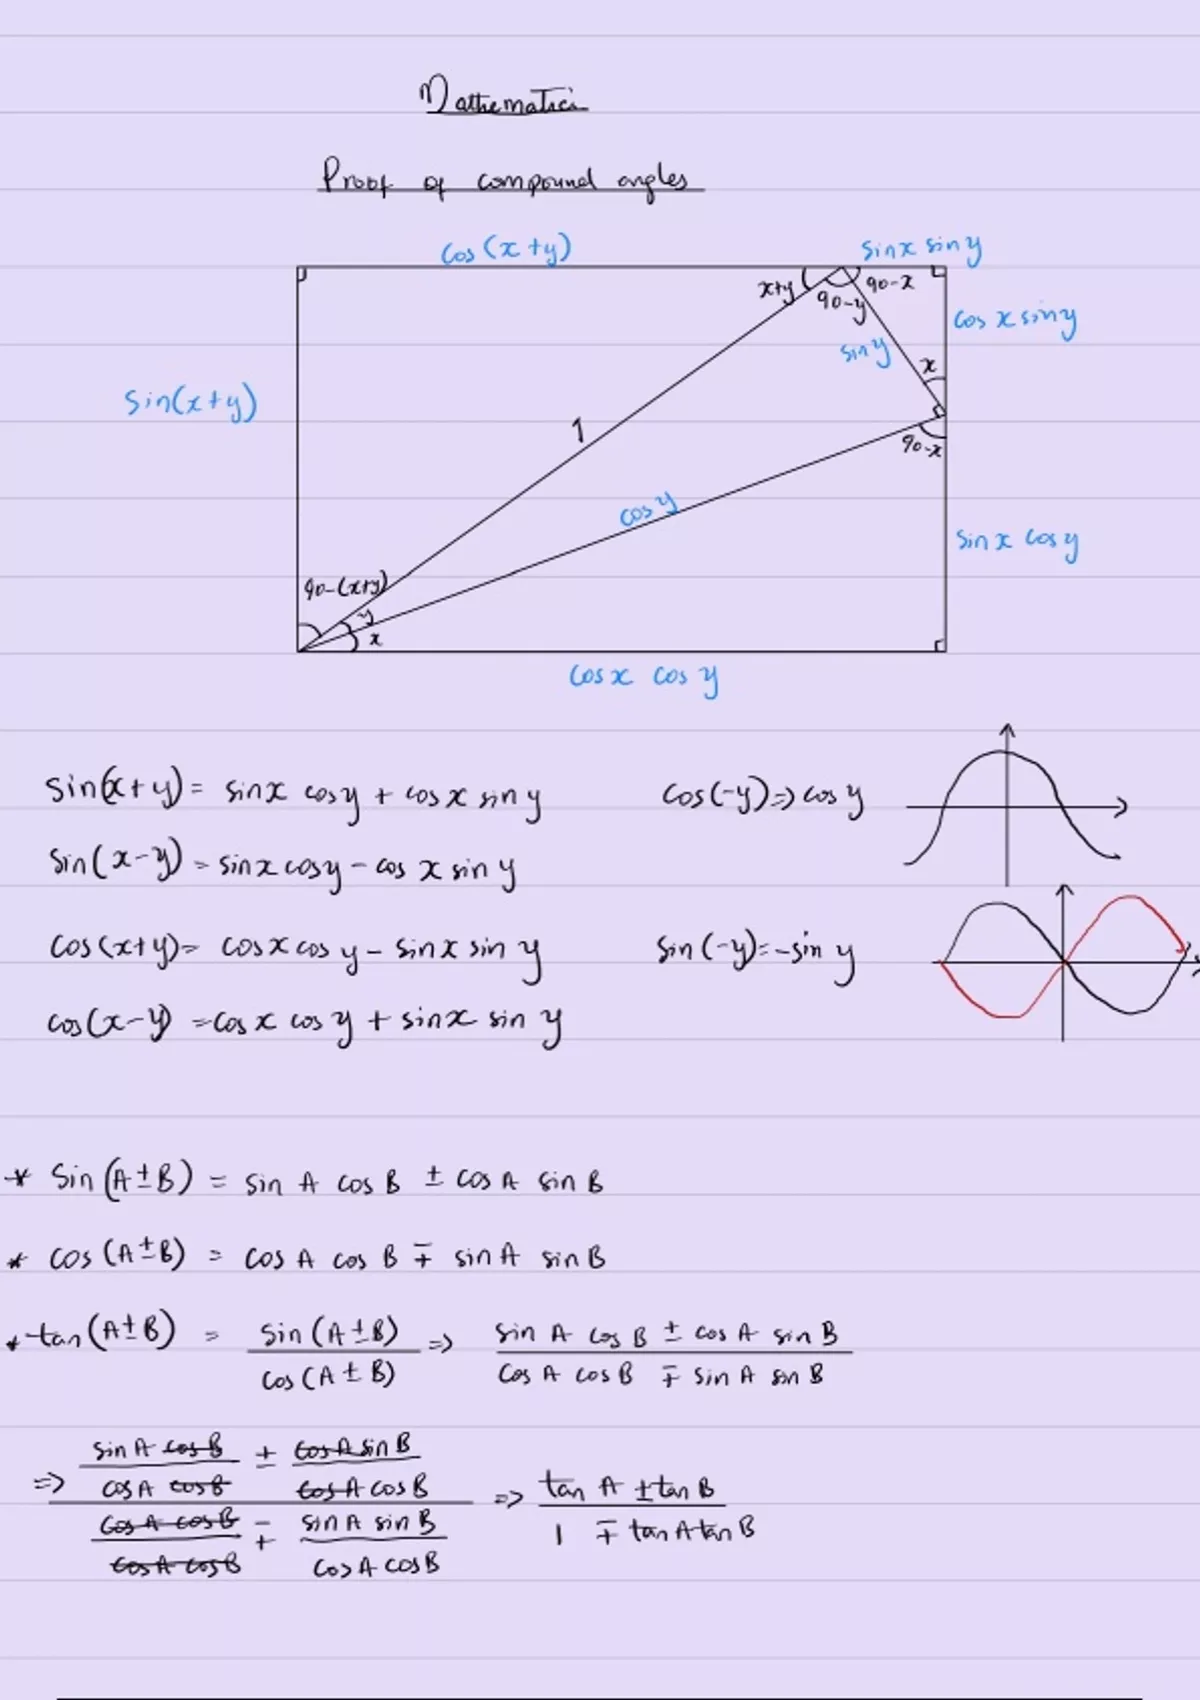 Mathematics
Proof of compound angles
cos (x+y)
sinx siny
x+y
90-y
90-x
cos x siny
sin y
x
Sin(x+y)
1
90-x
cos y
sinx cosy
90-(x+y)
y
x
cosx cos y
sin(x+y) = sinx cosy + cosx siny
cos(-y) => cos y
Sin(x-y) = sinx cosy - cos x sin y
cos(x+y) = cosx cos y - sinx sin y
sin(-y) = -sin y
cos(x-y) = cosx cosy + sinx sin y
* Sin (A±B) = sin A cos B ± cos A sin B
* cos (A±B) = cos A cos B ∓ sin A sin B
* tan (A±B) = sin (A±B) / cos (A±B) => sin A cos B ± cos A sin B / cos A cos B ∓ sin A sin B
=> sin A cos B / cos A cos B ± cos A sin B / cos A cos B
cos A cos B / cos A cos B ∓ sin A sin B / cos A cos B
=> tan A ± tan B / 1 ∓ tan A tan B